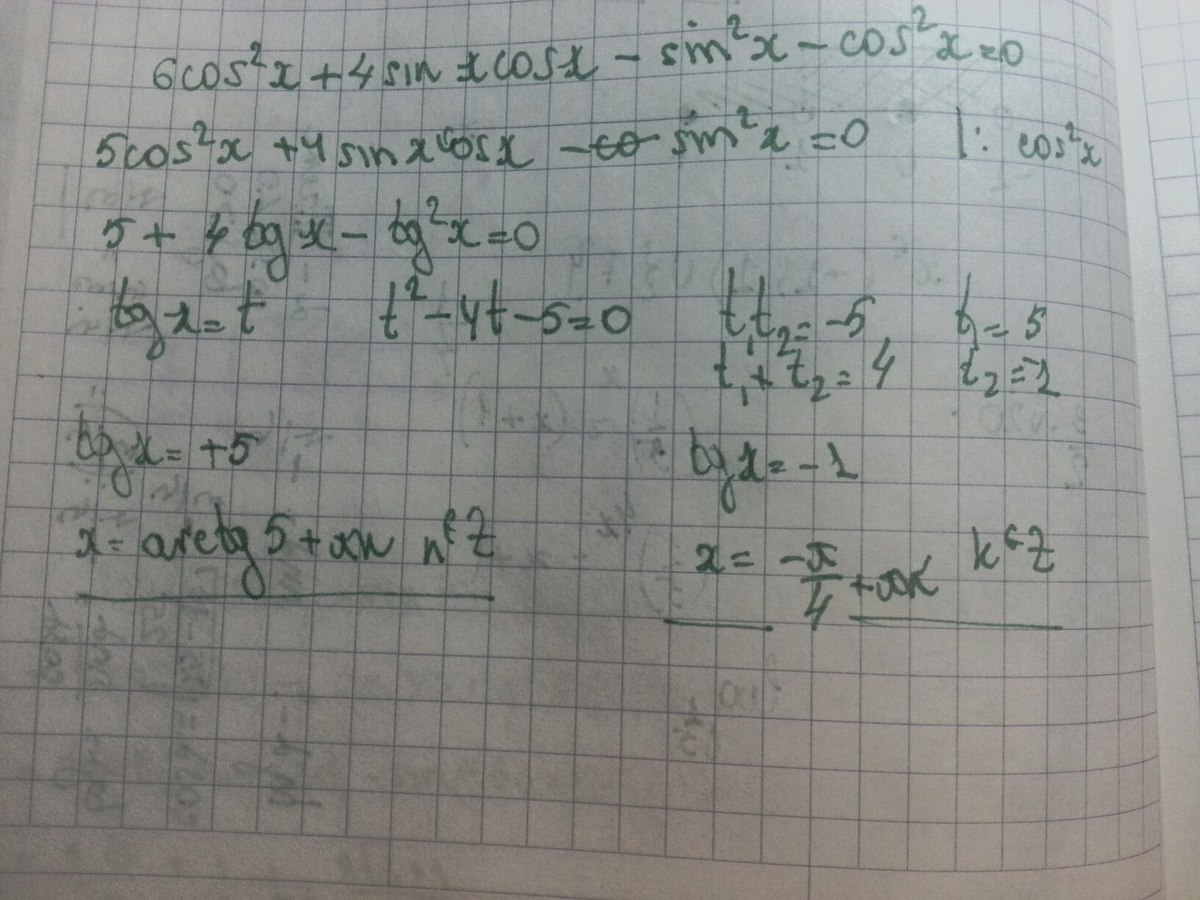 6cos²x + 4sin x cosx − sin²x − cos²x = 0
5cos²x + 4sinx cosx − sin²x = 0 |: cos²x
5 + 4 tg x − tg²x = 0
tg x = t t² − 4t − 5 = 0 t₁t₂ = −5 t₁ = 5
t₁ + t₂ = 4 t₂ = −1
tg x = +5 tg x = −1
x = arctg 5 + πn n∈Z x = −π/4 + πk k∈Z